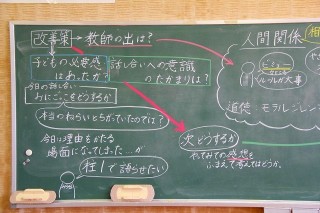 改善策→教師の出は?
子どもの必要感
はあったか?
話し合いへの意識
のたかまりは?
今日の話し合い
おにごっこをどうするか
本当のねらいとちがっていたのでは?
今日は理由をかたる
場面になってしまった が
柱1で語らせたい
次どうするか
やってみての感想を
ふまえて考えてはどうか。
人間関係
ルールが大事
道徳:モラルジレンマ